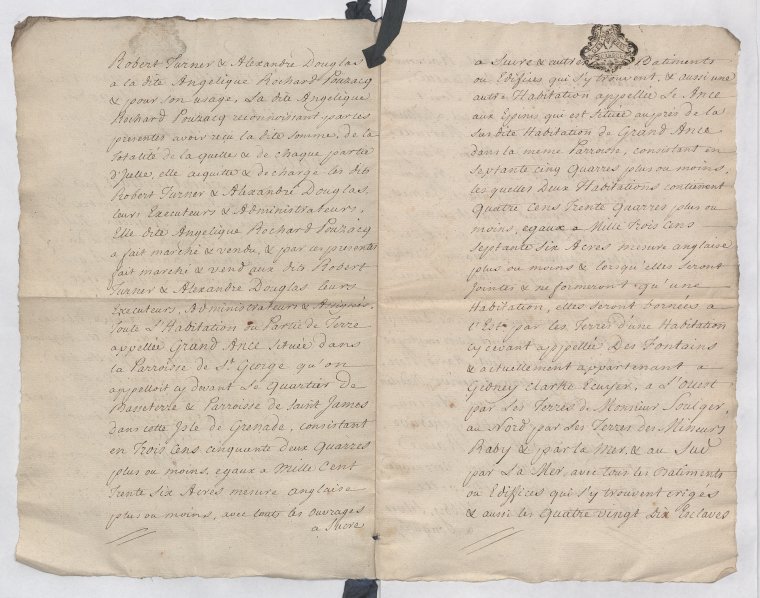 Robert Turner & Alexandre Douglas
a la dite Angelique Rochard Pouzacq
& pour son usage, La dite Angelique
Rochard Pouzacq reconnoissant par ces
presentes avoir reçu la dite somme, de la
Totalité de la quelle & de chaque partie
d'Jcelle, elle aquitte & decharge les dits
Robert Turner & Alexandre Douglas,
leurs Executeurs & Administrateurs,
Elle dite Angelique Rochard Pouzacq
a fait marché & vendu, & par ces presentes
fait marché & vend aux dits Robert
Turner & Alexandre Douglas leurs
Executeurs, Administrateurs & Assignés,
Toute L'Habitation ou Partie de Terre
appellée Grand Ance Située dans
la Parroisse de St. George qu'on
appelloit cy devant Le Quartier de
Basseterre & Parroisse de Saint James
dans cette Jsle de Grenade, consistant
en Trois Cens cinquante deux Quarres
plus ou moins, egaux a Mille Cent
Trente Six Acres mesure anglaise
plus ou moins, avec touts les ouvrages
a Sucre
a Sucre & autres Batiments
ou Edifices qui s'y trouvent, & aussi une
autre Habitation appellée Le Ance
aux Epines qui est Située auprés de la
sus dite Habitation de Grand Ance
dans la meme Parroisse, consistant en
Septante cinq Quarres plus ou moins,
les quelles Deux Habitations contienent
Quatre Cens Trente Quarres plus ou
moins, egaux a Mille Trois Cens
Septante Six Acres mesure anglaise
plus ou moins & lorsqu'elles seront
Jointes & ne formeront qu'une
Habitation, elles seront bornées a
l'Est par les Terres d'une Habitation
cy devant appellée Des Fontains
& actuellement appartenant a
Gidney Clarke Ecuyer, a L'Ouest
par Les Terres de Monsieur Soulger,
au Nord par Les Terres des Mineurs
Baby & par la Mer, & au Sud
par La Mer, avec tous les Batiments
ou Edifices qui s'y trouvent erigés
& aussi les Quatre vingt Dix Esclaves